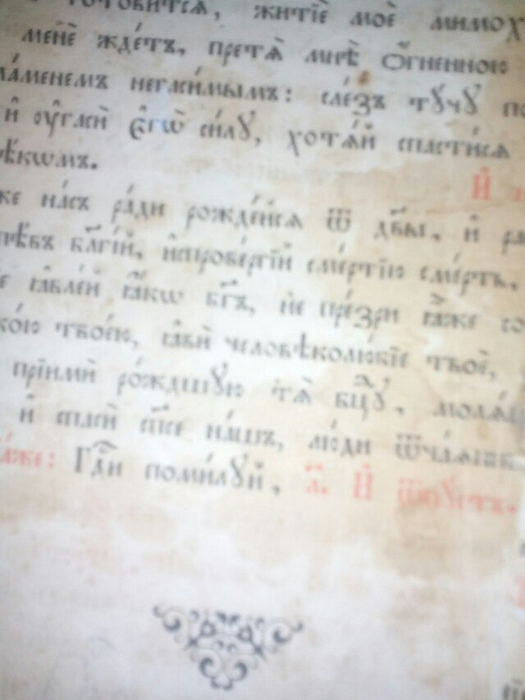 готовитсѧ, житїе моѐ мимохо
менѐ ждетъ, претѧ̀ мнѣ ѻ҆́гненною
ла́менемъ негаси́мымъ: сле́зъ тꙋ́чꙋ
и҆ ᲂу҆гасѝ є҆гѡ̀ си́лꙋ, хотѧ́й спасти́сѧ
вѣ́кѡмъ.
И҆
же на́съ ра́ди рожде́йсѧ ѿ дв҃ы, и҆
бл҃гі́й, и҆спрове́ргїй сме́ртїю сме́рть,
ꙗ҆вле́й ꙗ҆́кѡ бг҃ъ, не пре́зри ꙗ҆̀же со
ко́ю твое́ю, ꙗ҆вѝ человѣколю́бїе твоѐ,
прїимѝ ро́ждшꙋю тѧ̀ бц҃ꙋ, молѧ́
и҆ спасѝ сп҃се на́шъ, лю́ди ѿча́ѧнн
а́же: Гдⷭ҇и поми́лꙋй, л҃. И҆ ѿпꙋ́стъ.